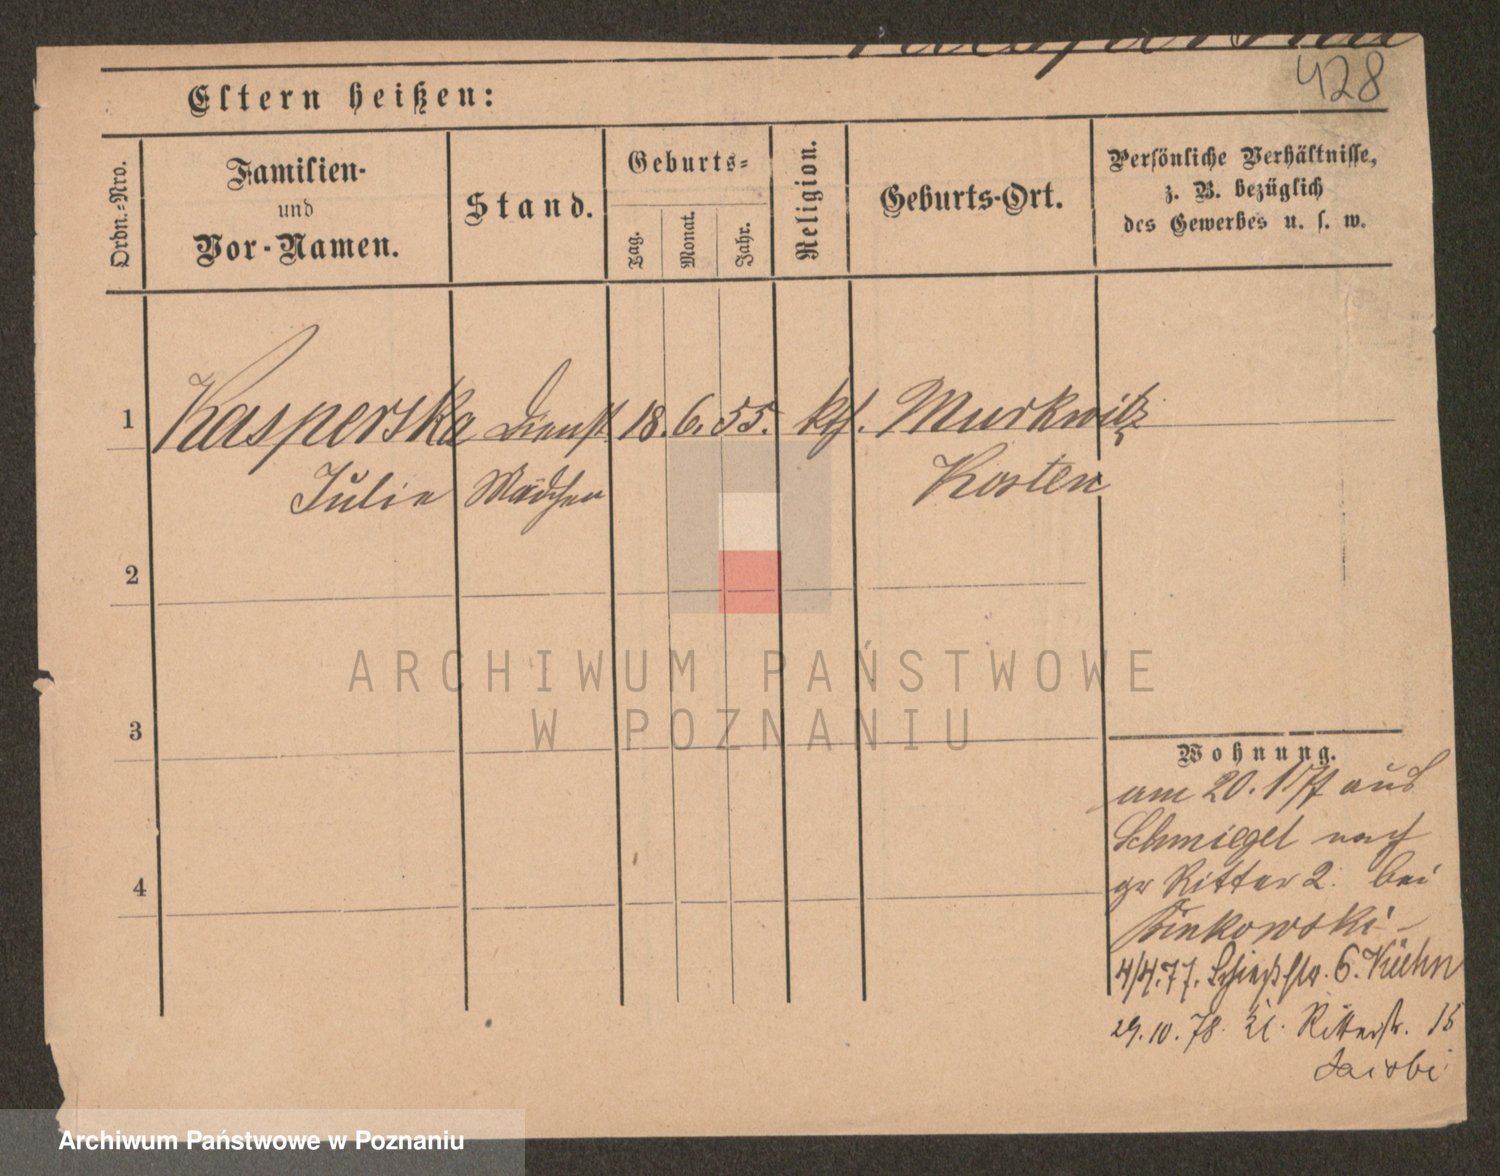 428
Eltern heißen:
Ordn.-Nro.
Familien-
und
Vor-Namen.
Stand.
Geburts-
Tag.
Monat.
Jahr.
Religion.
Geburts-Ort.
Persönliche Verhältnisse,
z. B. bezüglich
des Gewerbes u. s. w.
1 Kasperska Dienst 18. 6. 55. kth. Murkwitz
Julie Mädchen Kosten
2
3
4
Wohnung.
am 20. 1/77 aus
Schmiegel nach
gr Ritter 2. bei
4/4.77. Schießstr. 6. Kühn
29.10.78. kl. Ritterstr. 15
Jacobi
ARCHIWUM PAŃSTWOWE
W POZNANIU
Archiwum Państwowe w Poznaniu